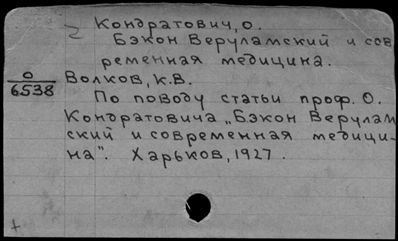 2 Кондратович, О.
Бэкон Веруламский и сов
ременная медицина.
О
6538
Волков, К.В.
По поводу статьи проф. О.
Кондратовича „Бэкон Верулам
ский и современная медици-
на". Харьков, 1927.